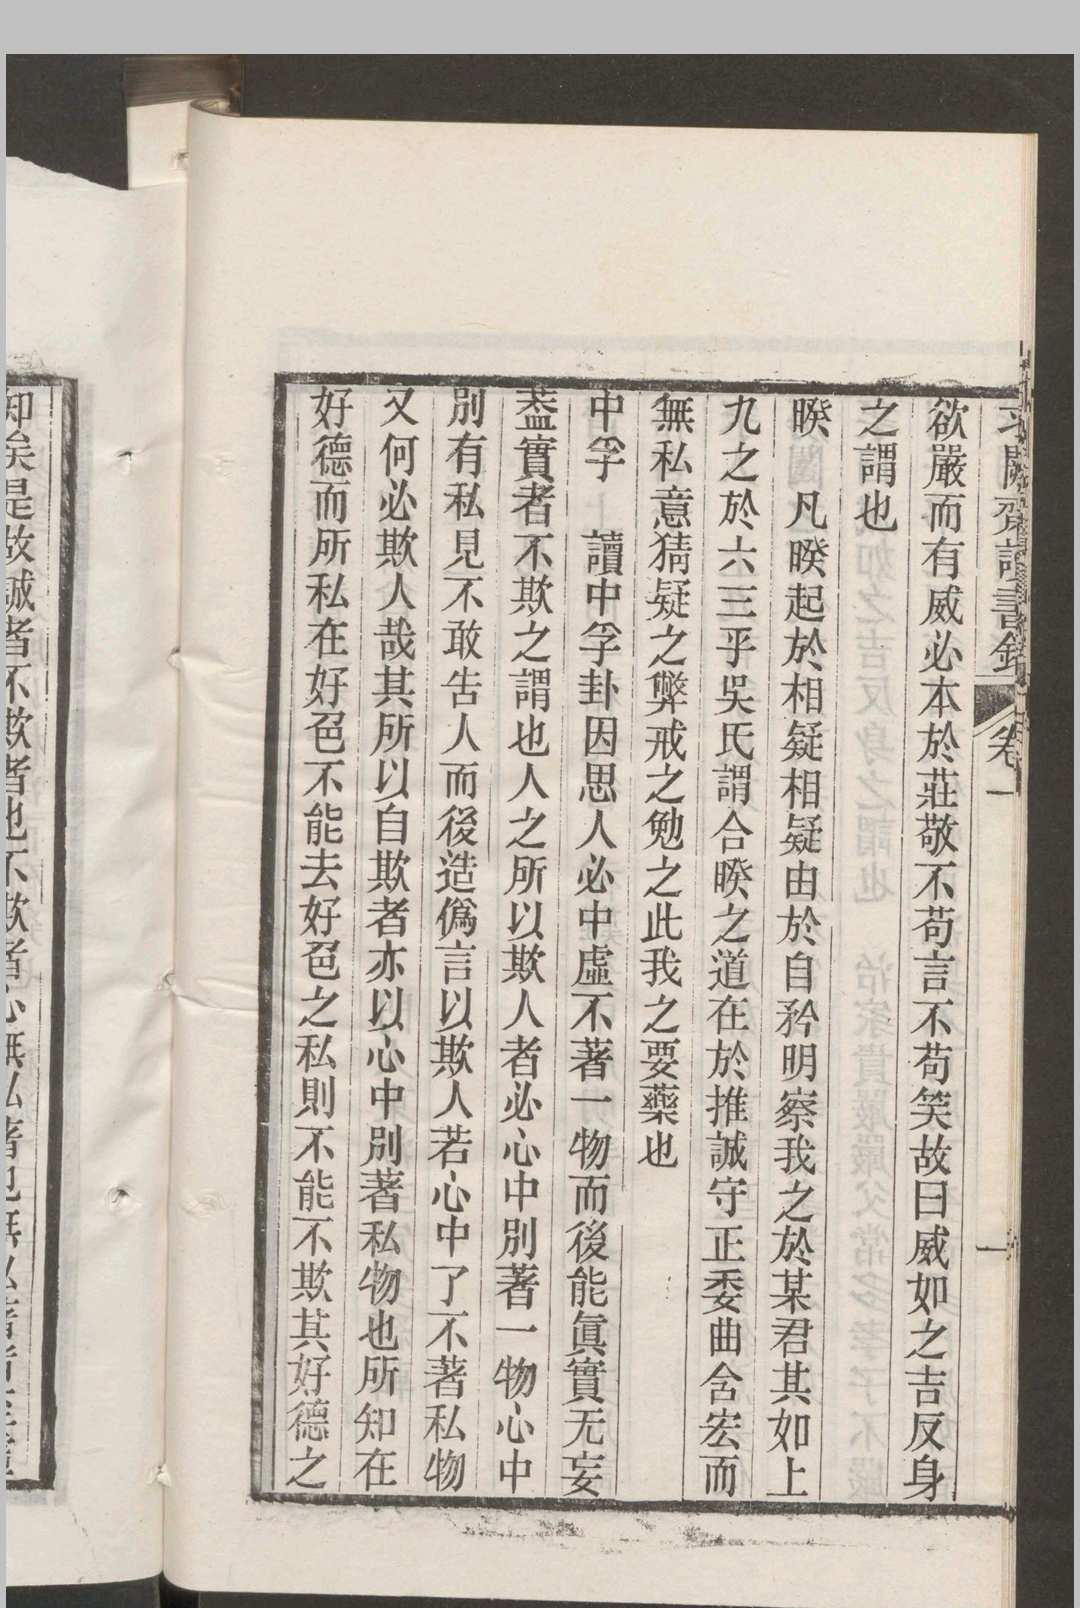 求闕齋讀書錄 卷一 一
欲嚴而有威必本於莊敬不苟言不苟笑故曰威如之吉反身
之謂也
睽 凡睽起於相疑相疑由於自矜明察我之於某君其如上
九之於六三乎吳氏謂合睽之道在於推誠守正委曲含宏而
無私意猜疑之弊戒之勉之此我之要藥也
中孚 讀中孚卦因思人必中虛不著一物而後能眞實无妄
葢實者不欺之謂也人之所以欺人者必心中別著一物心中
別有私見不敢吿人而後造僞言以欺人若心中了不著私物
又何必欺人哉其所以自欺者亦以心中別著私物也所知在
好德而所私在好色不能去好色之私則不能不欺其好德之
知矣是故誠者不欺者也不欺者心無私著也無私著者至虛